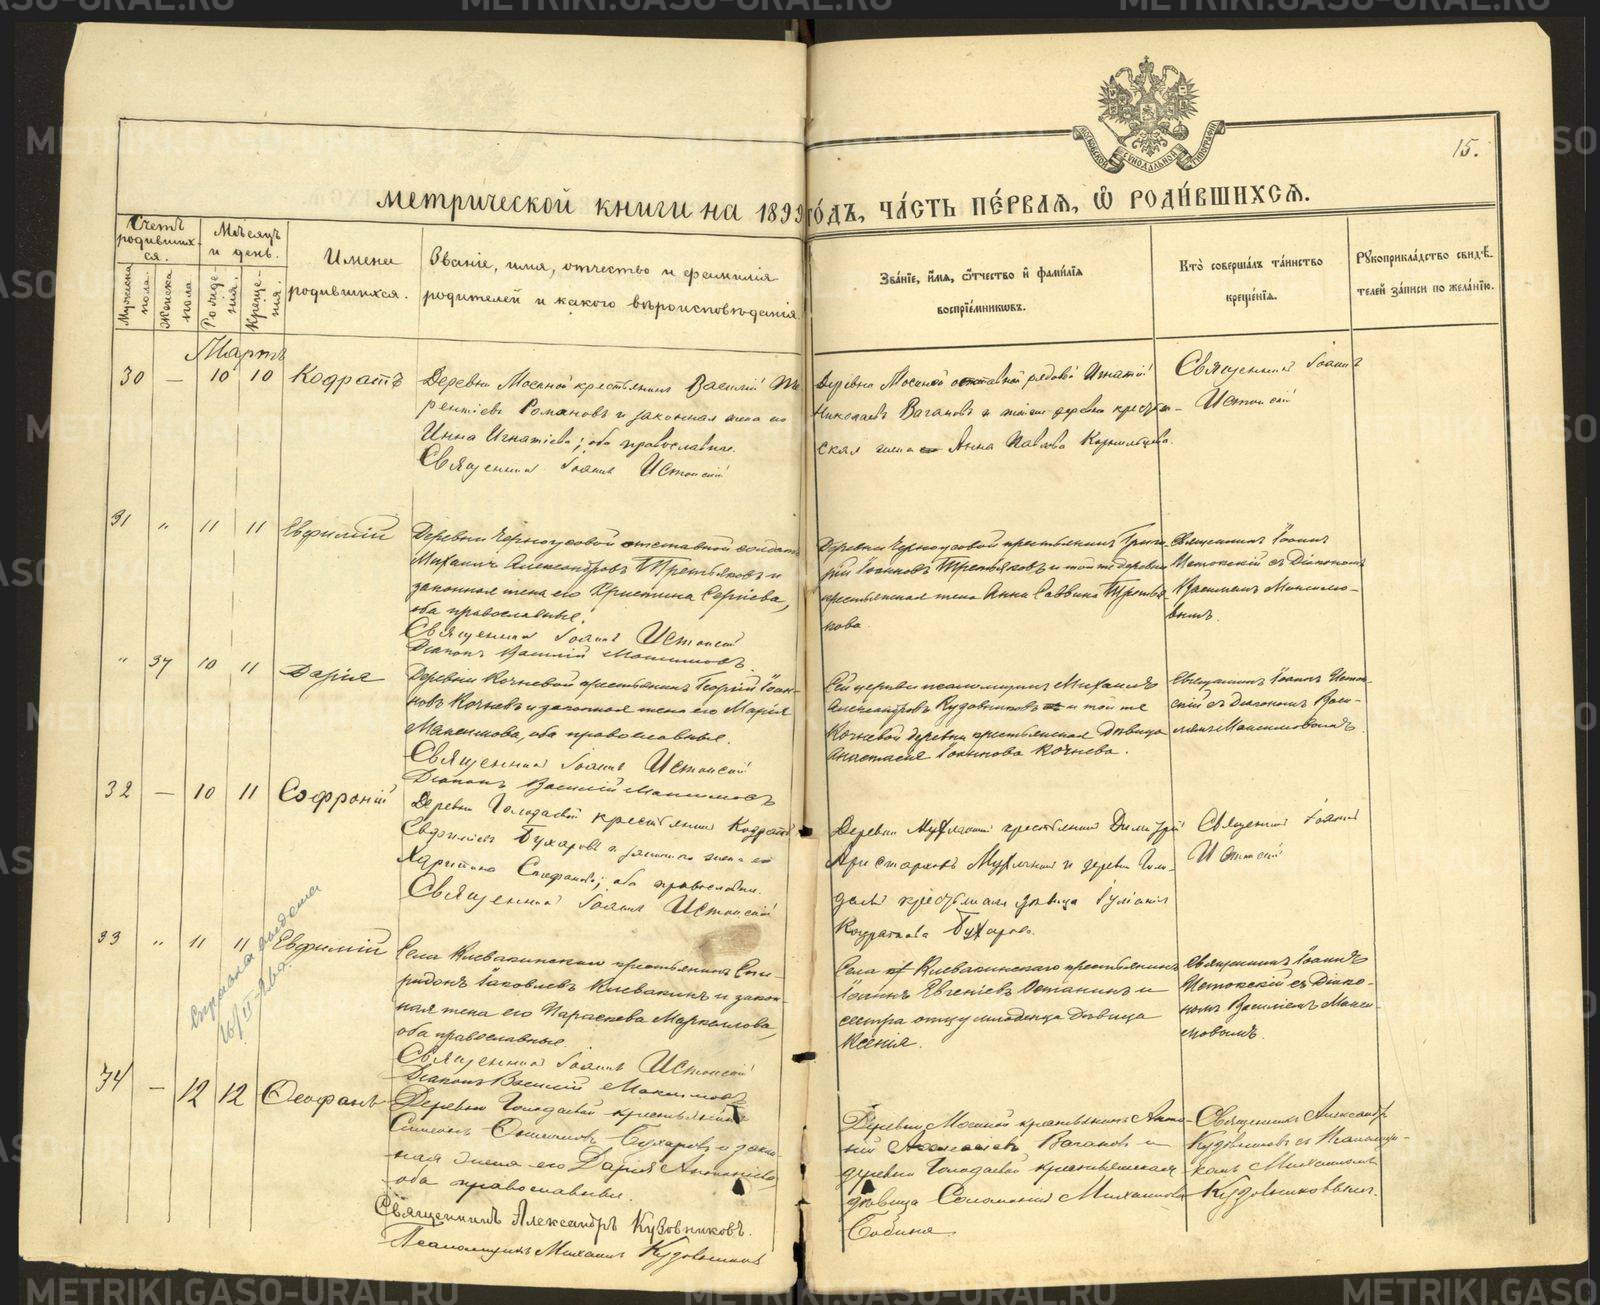 METRIKI.GASO-URAL.RU
15.
МОСКОВСКОЙ СѴНОДАЛЬНОЙ ТИПОГРАФІИ
метрической книги на 1899 го́дъ, ча́сть пе́рвая, ѡ҆ роди́вшихсѧ.
Счетъ родившихся.
Мѣсяцъ и день.
Имена родившихся.
Званіе, имя, отчество и фамилія
родителей и какого вѣроисповѣданія.
Мужеска пола.
Женска пола.
Рожденія.
Крещенія.
Зва́нїе, и҆́мѧ, ѻ҆́тчество и҆ фамѝлїѧ
воспрїе́мникѡвъ.
Кто̀ соверша́лъ та́инство
креще́нїѧ.
Рꙋкоприкла́дство свидѣ́-
телей за́писи по жела́нїю.
Мартъ
30 — 10 10 Кодратъ
Деревни Мосиной крестьянинъ Василій Те-
рентіевъ Романовъ и законная жена его
Анна Игнатіева; оба православные.
Священникъ Іоаннъ Истокскій
Деревни Мосиной отставной рядовой Игнатій
Николаевъ Вагановъ и тойже деревни крестьян-
ская жена Анна Павлова
Священникъ Іоаннъ
Истокскій
31 " 11 11 Евфимій
Деревни Черноусовой отставной солдатъ
Михаилъ Александровъ Третьяковъ и
законная жена его Христина Сергіева,
оба православные.
Священникъ Іоаннъ Истокскій
Діаконъ Василій Максимовъ.
Деревни Черноусовой крестьянинъ Григо-
рій Іоанновъ Третьяковъ и той же деревни
крестьянская жена Анна Саввина Третья-
кова.
Священникъ Іоаннъ
Истокскій съ Діакономъ
Василіемъ Максимо-
вымъ.
" 37 10 11 Дарія
Деревни Кочневой крестьянинъ Георгій Іоан-
новъ Кочневъ и законная жена его Марія
Максимова, оба православные.
Священникъ Іоаннъ Истокскій
Діаконъ Василій Максимовъ
Сей церкви псаломщикъ Михаилъ
Александровъ Кузовниковъ и той же
Кочневой деревни крестьянская дѣвица
Анастасія Іоаннова Кочнева.
Священникъ Іоаннъ Исток-
скій съ Діакономъ Васи-
ліемъ Максимовымъ.
32 — 10 11 Софроній
Деревни Гилодаевой крестьянинъ Кодратъ
Евфиміевъ Бухаровъ и законная жена его
Харитина Стефанова; оба православные.
Священникъ Іоаннъ Истокскій
Деревни крестьянинъ Димитрій
Аристарховъ и деревни
крестьянская дѣвица Іуліанія
Кодратова Бухарова.
Священникъ Іоаннъ
Истокскій
33 " 11 11 Евфимій
Села Клевакинскаго крестьянинъ Спи-
ридонъ Іаковлевъ Клевакинъ и закон-
ная жена его Параскева Маркеллова,
оба православные.
Священникъ Іоаннъ Истокскій
Діаконъ Василій Максимовъ
Села Клевакинскаго крестьянинъ
Іоаннъ Евгеніевъ Останинъ и
сестра отцу младенца дѣвица
Ксенія.
Священникъ Іоаннъ
Истокскій съ Діако-
номъ Василіемъ Макси-
мовымъ.
выдана
16/II-26г.
34 — 12 12 Ѳеофанъ
Деревни крестьянинъ
Симеонъ Бухаровъ и закон-
ная жена его Дарія
оба православные.
Священникъ Александръ Кузовниковъ.
Псаломщикъ Михаилъ Кузовниковъ
Деревни Мосиной крестьянинъ
Ваганов и
деревни крестьянская
дѣвица Соломонія Михаилова
Бабина
Священникъ Александръ
Кузовниковъ съ Псаломщи-
комъ Михаиломъ
Кузовниковымъ.